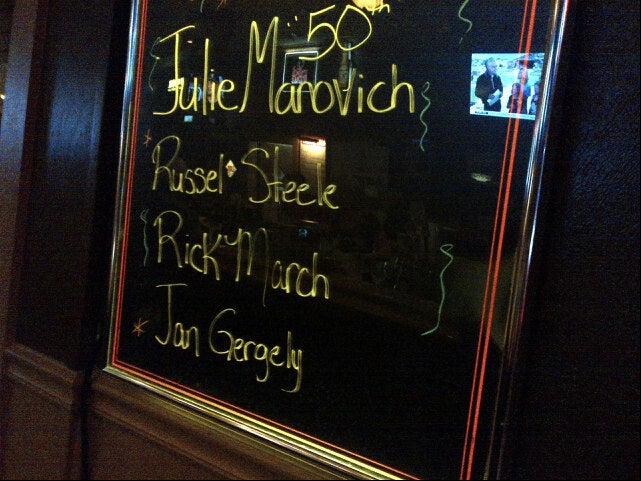 50th
Julie Manovich
Russel Steele
Rick March
Jan Gergely